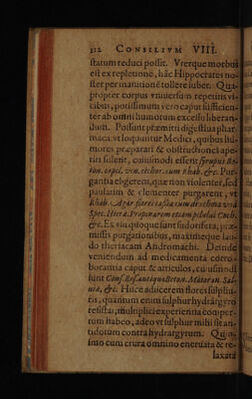 312 CONSILIVM VIII.
statum reduci possit. Vterque morbus
est ex repletione, hãc Hippocrates no-
ster per inanitionẽ tollere iubet. Qua-
propter corpus vniuersum repetitis vi-
cibus, potissimum vero caput sufficien-
ter ab omni humorum excessu liberan-
dum. Possunt præmitti digestiua phar-
maca, vt loquuntur Medici, quibus hu-
mores præparari & obstructiones ape-
riri solent, cuiusmodi essent syrupus
cum Rhab. &c. Pur-
gantia eligerem, quæ non violenter, sed
paulatim & clementer purgarent, vt
Rhab. Agar.
Spec. Hieræ
&c. Ex his quoque sunt sudorifera, præ-
missis purgationibus, maximeque lau-
do theriacam Andromachi. Deinde
veniendum ad medicamenta corro-
borantia caput & articulos, cuiusmodi
sunt Cons.
&c. Hisce adiicerem flores sulphu-
ris, quantum enim sulphur hydrargyro
resistat, multiplici experientia comper-
tum habeo, adeo vt sulphur mihi sit an-
tidotum contra hydrargyrum.
nio cum crura omnino eneruata & re-
laxata